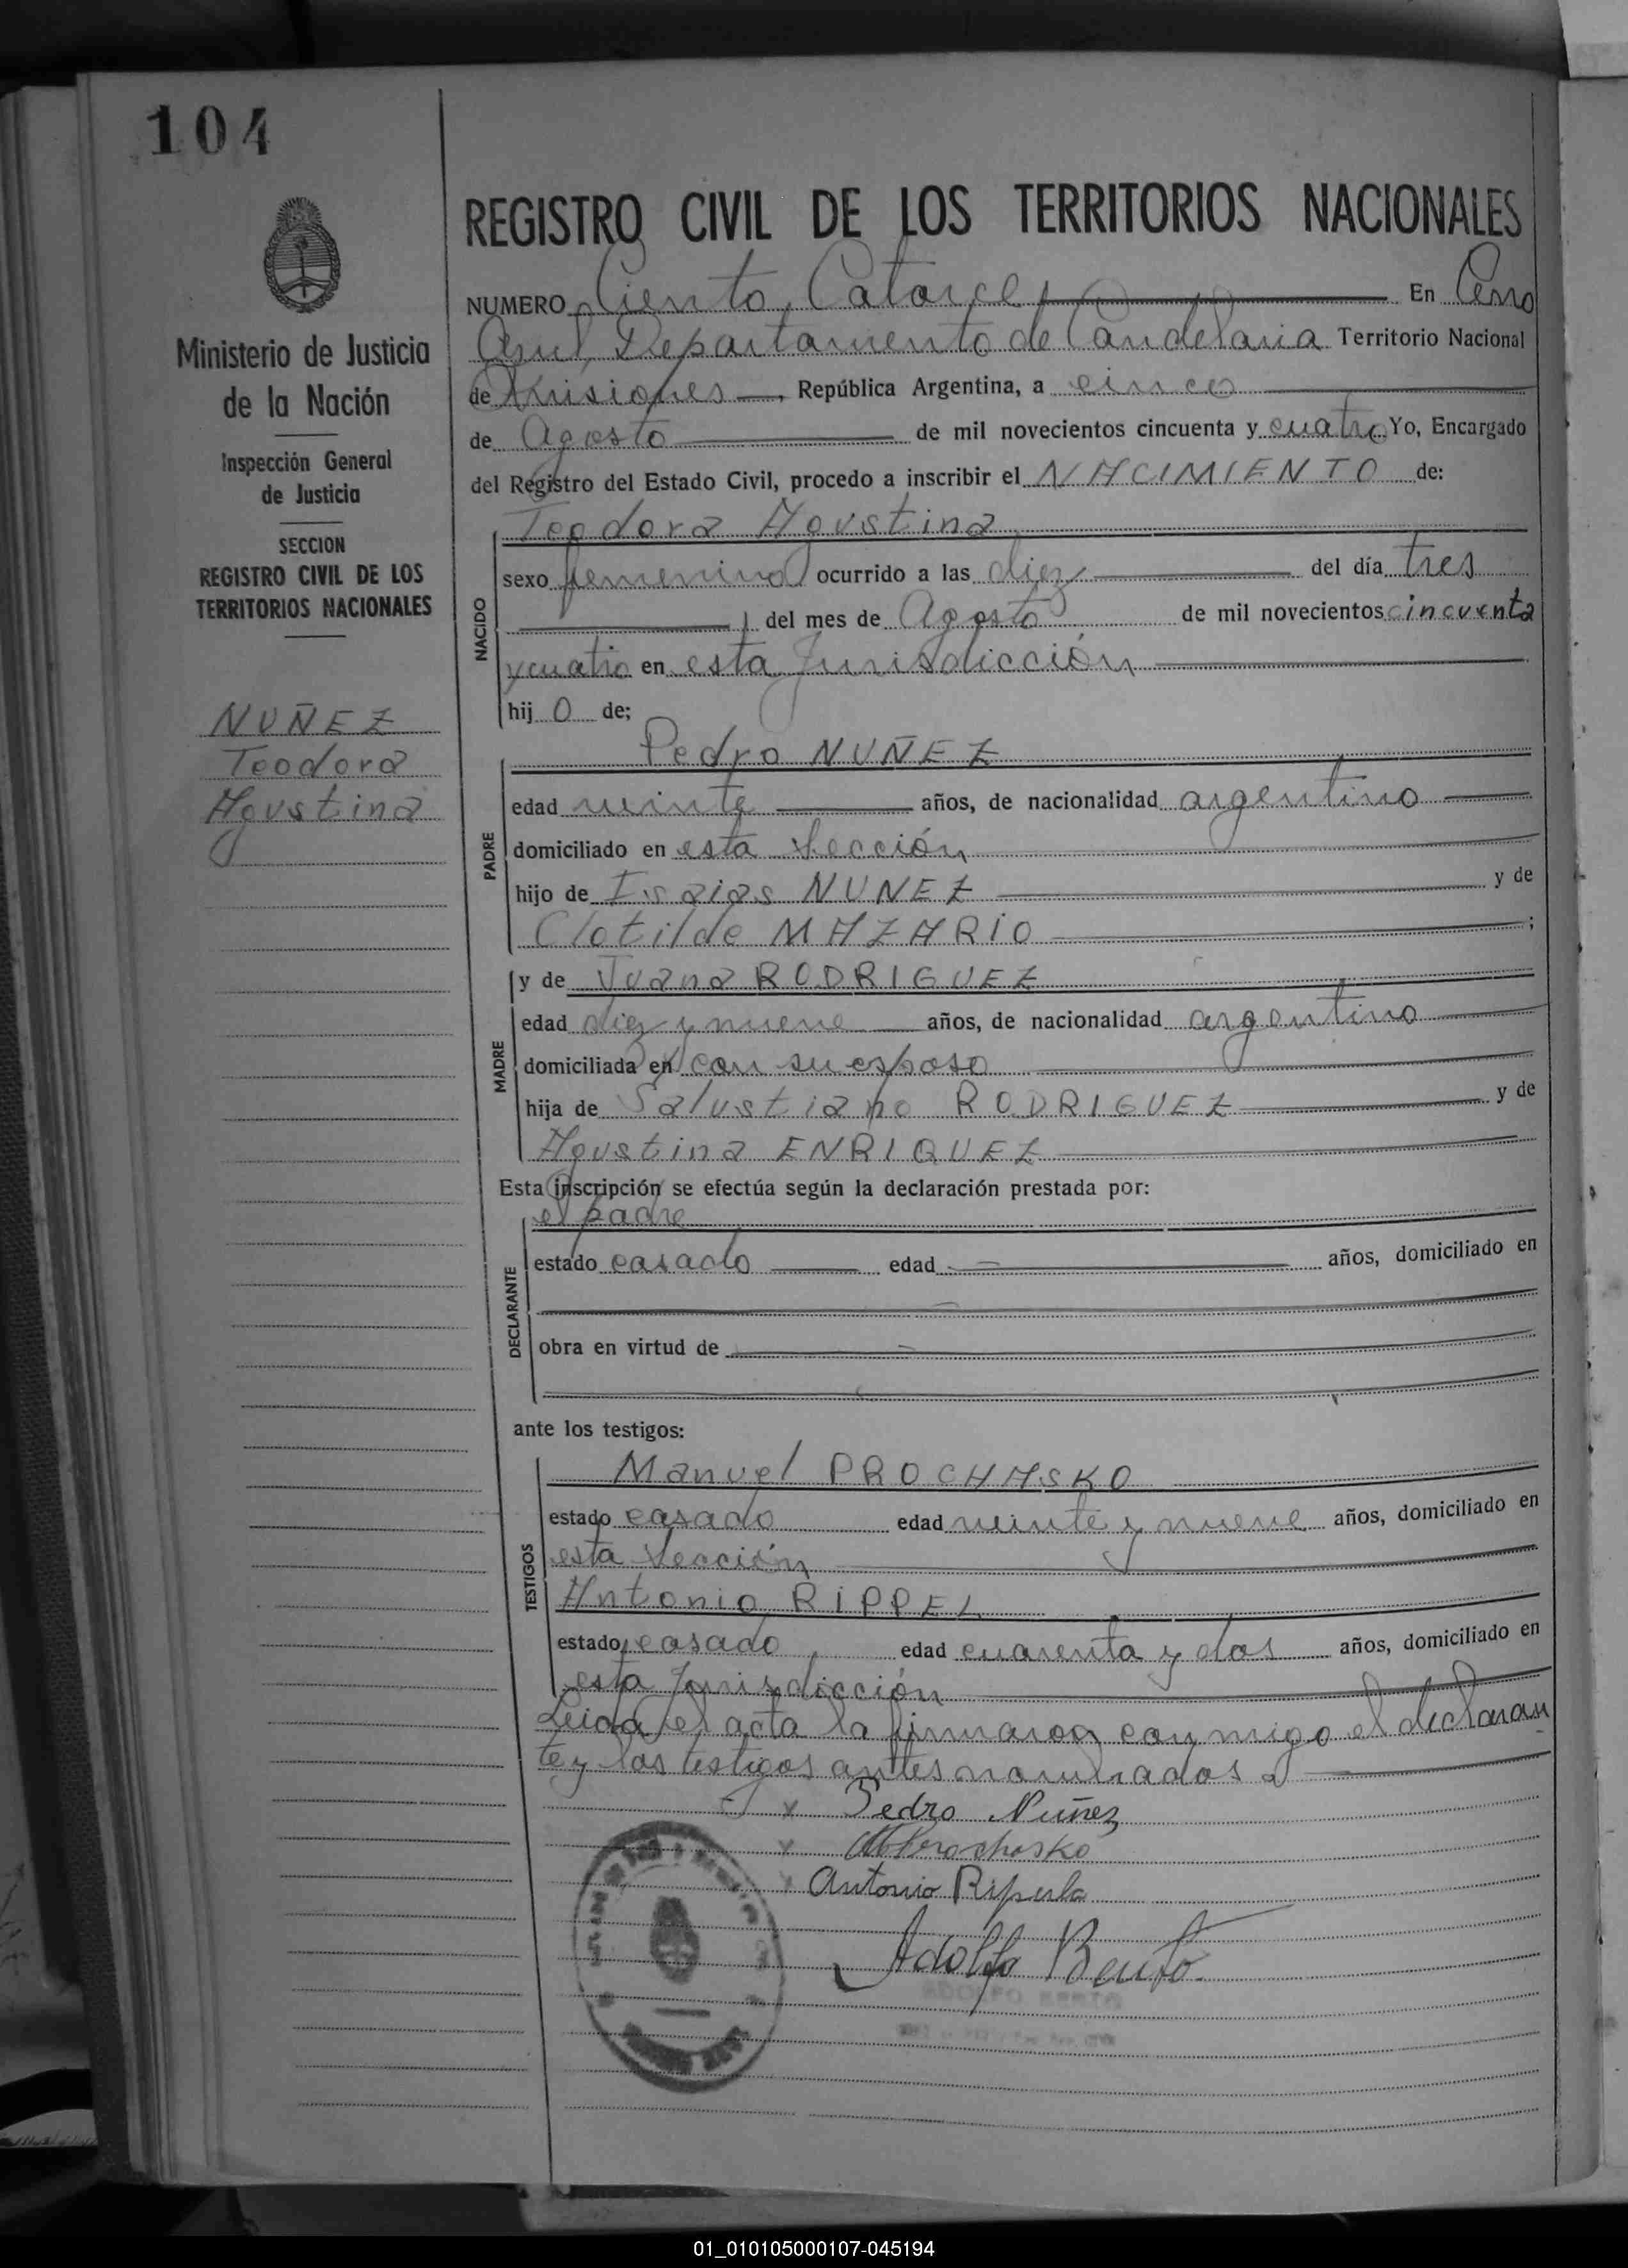 104
Ministerio de Justicia
de la Nación
Inspección General
de Justicia
SECCION
REGISTRO CIVIL DE LOS
TERRITORIOS NACIONALES
NUÑEZ
Teodora
Agustina
REGISTRO CIVIL DE LOS TERRITORIOS NACIONALES
NUMERO Ciento Catorce En Cerro
Azul, Departamento de Candelaria Territorio Nacional
de Misiones, República Argentina, a cinco
de Agosto de mil novecientos cincuenta y cuatro Yo, Encargado
del Registro del Estado Civil, procedo a inscribir el NACIMIENTO de:
Teodora Agustina
NACIDO
sexo femenino ocurrido a las diez del día tres
del mes de Agosto de mil novecientos cincuenta
y cuatro en esta Jurisdicción
hij o de;
Pedro NUÑEZ
PADRE
edad veinte años, de nacionalidad argentino
domiciliado en esta Sección
hijo de Isaias NUNEZ y de
Clotilde MAZARIO ;
y de Juana RODRIGUEZ
MADRE
edad diez y nueve años, de nacionalidad argentino
domiciliada en con su esposo
hija de Salustiano RODRIGUEZ y de
Agustina ENRIQUEZ
Esta inscripción se efectúa según la declaración prestada por:
el padre
DECLARANTE
estado casado edad años, domiciliado en
obra en virtud de
ante los testigos:
Manuel PROCHASKO
TESTIGOS
estado casado edad veinte y nueve años, domiciliado en
esta Sección
Antonio RIPPEL
estado casado edad cuarenta y dos años, domiciliado en
esta Jurisdicción
Leida el acta la firmaron conmigo el declaran
te y los testigos antes nombrados
x Pedro Nuñez
x M Prochasko
x Antonio Riperla
Adolfo Bento
ADOLFO BENTO
01_010105000107-045194